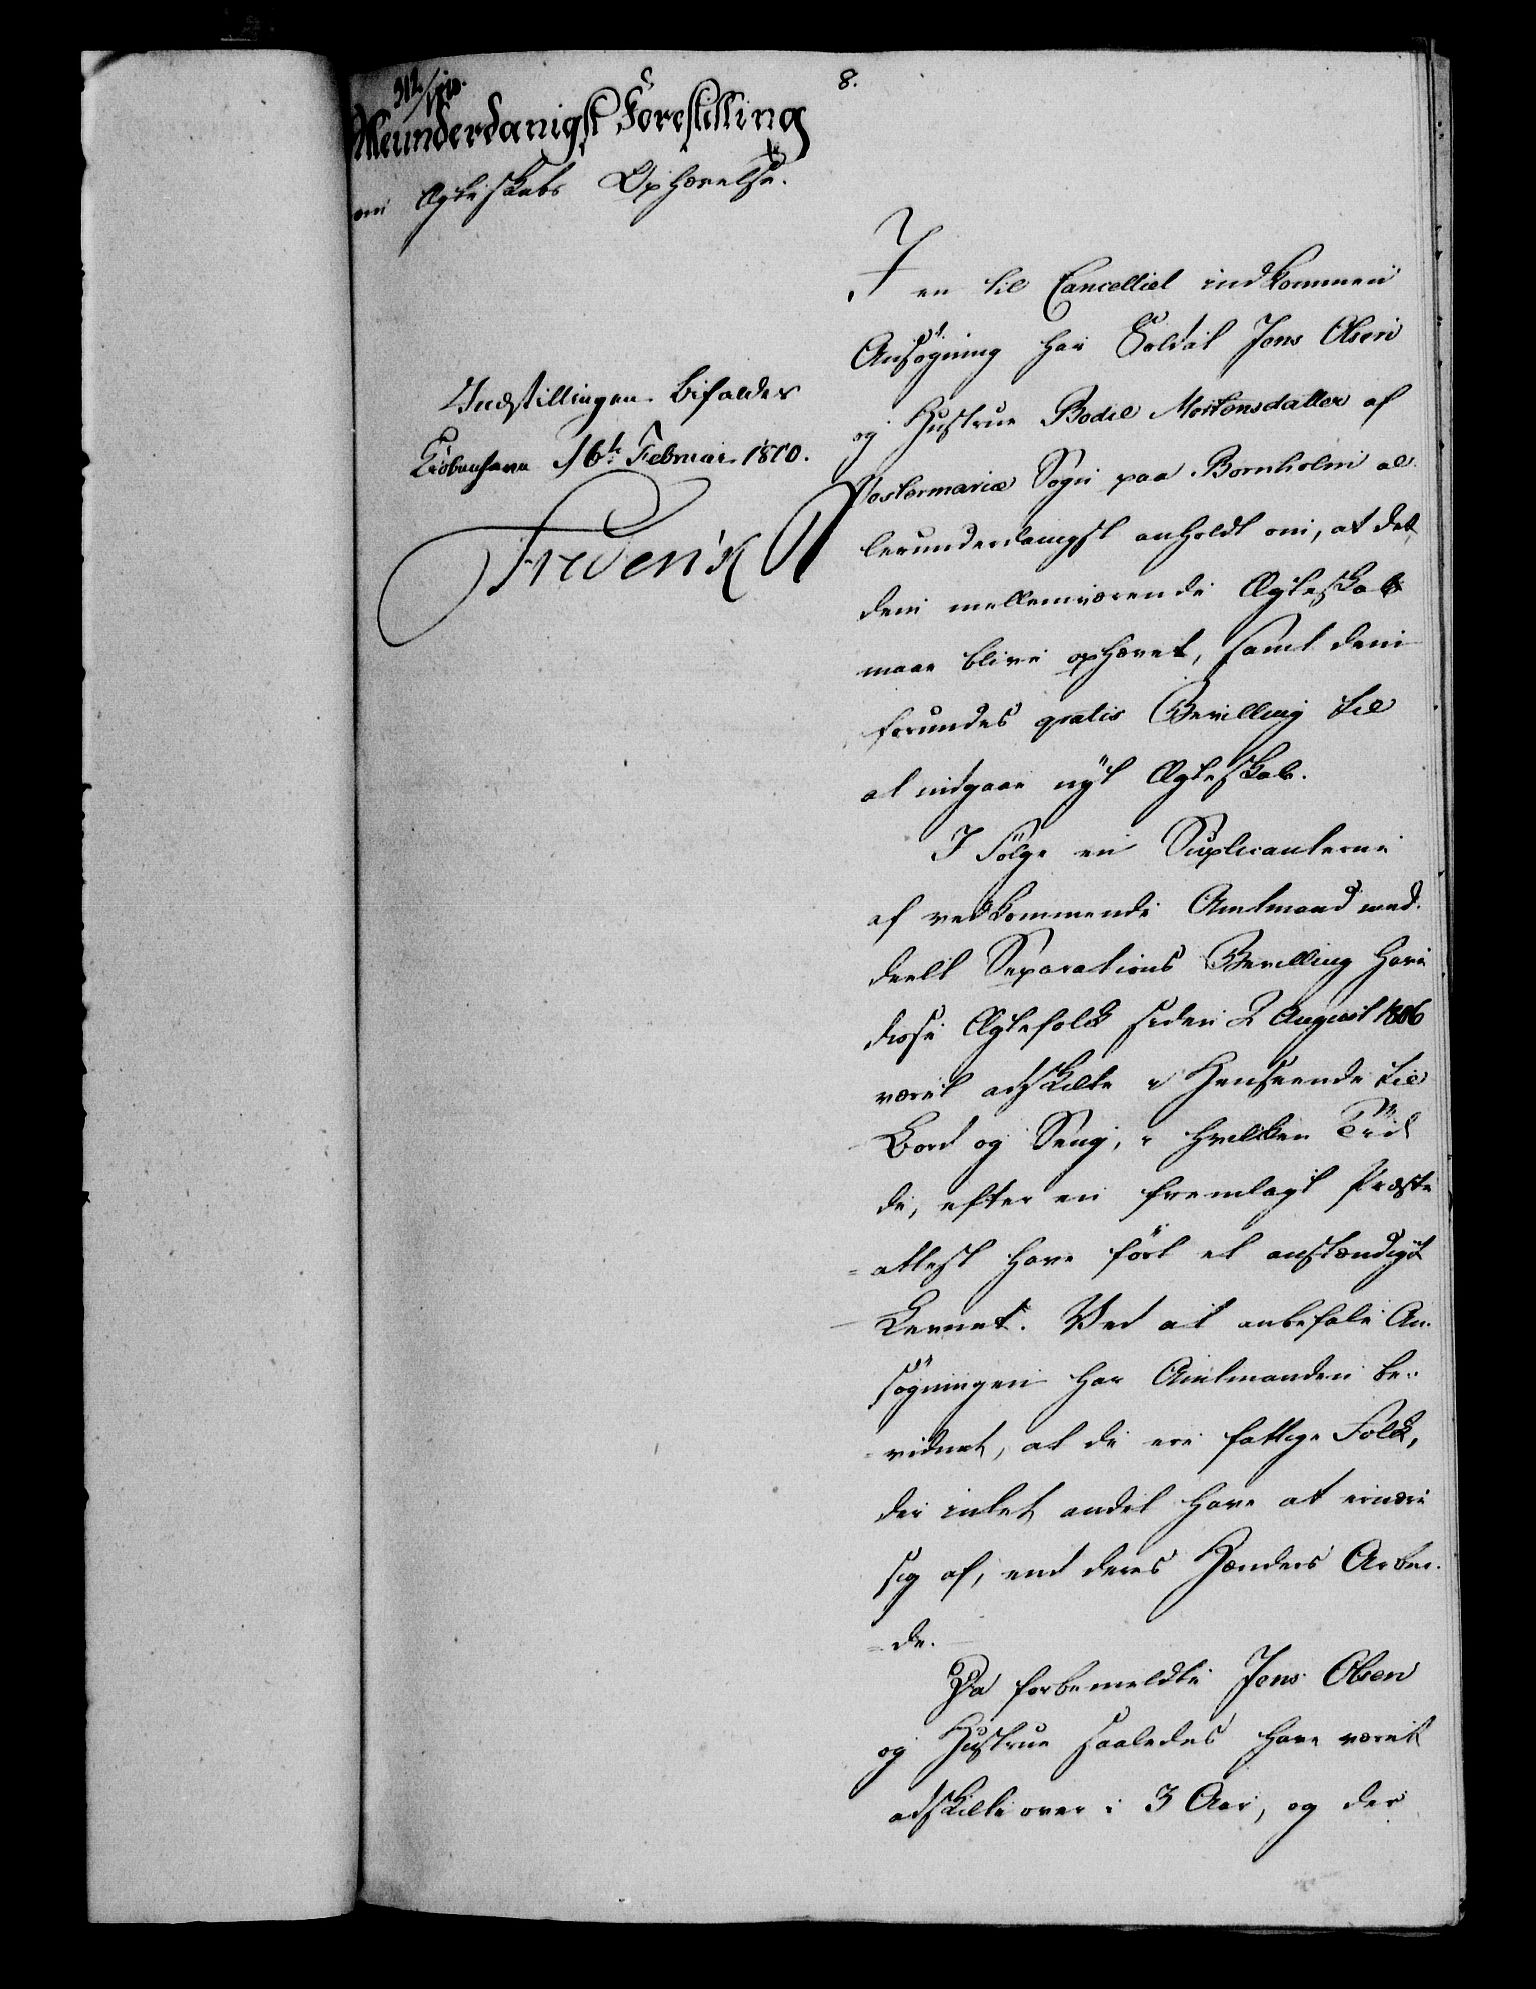 8.
312/1810.
Allerunderdanigst Forestilling
om Ægteskabs Ophævelse.
Indstillingen bifaldes
Kiøbenhavn 16de Februar 1810.
Frederik R
I en til Cancelliet indkommen
Ansøgning har Soldat Jens Olsen
og Hustrue Bodil Mortensdatter af
Østermariæ Sogn paa Bornholm al-
lerunderdanigst anholdt om, at det
dem mellemværende Ægteskab
maae blive ophævet, samt dem
forundes gratis Bevilling til
at indgaae nyt Ægteskab.
I Følge en Suplicanterne
af vedkommende Amtmand med-
deelt Separations Bevilling have
disse Ægtefolk siden 2 August 1806
været adskilte i Henseende til
Bord og Seng, i hvilken Tiid
de, efter en fremlagt Præste
=attest have ført et anstændigt
Levnet. Ved at anbefale An-
søgningen har Amtmanden be-
=vidnet, at de ere fattige Folk,
der intet andet have at ernære
sig af, end deres Hænders Arbei-
=de.
Da forbemeldte Jens Olsen
og Hustrue saaledes have været
adskilte over i 3 Aar, og der